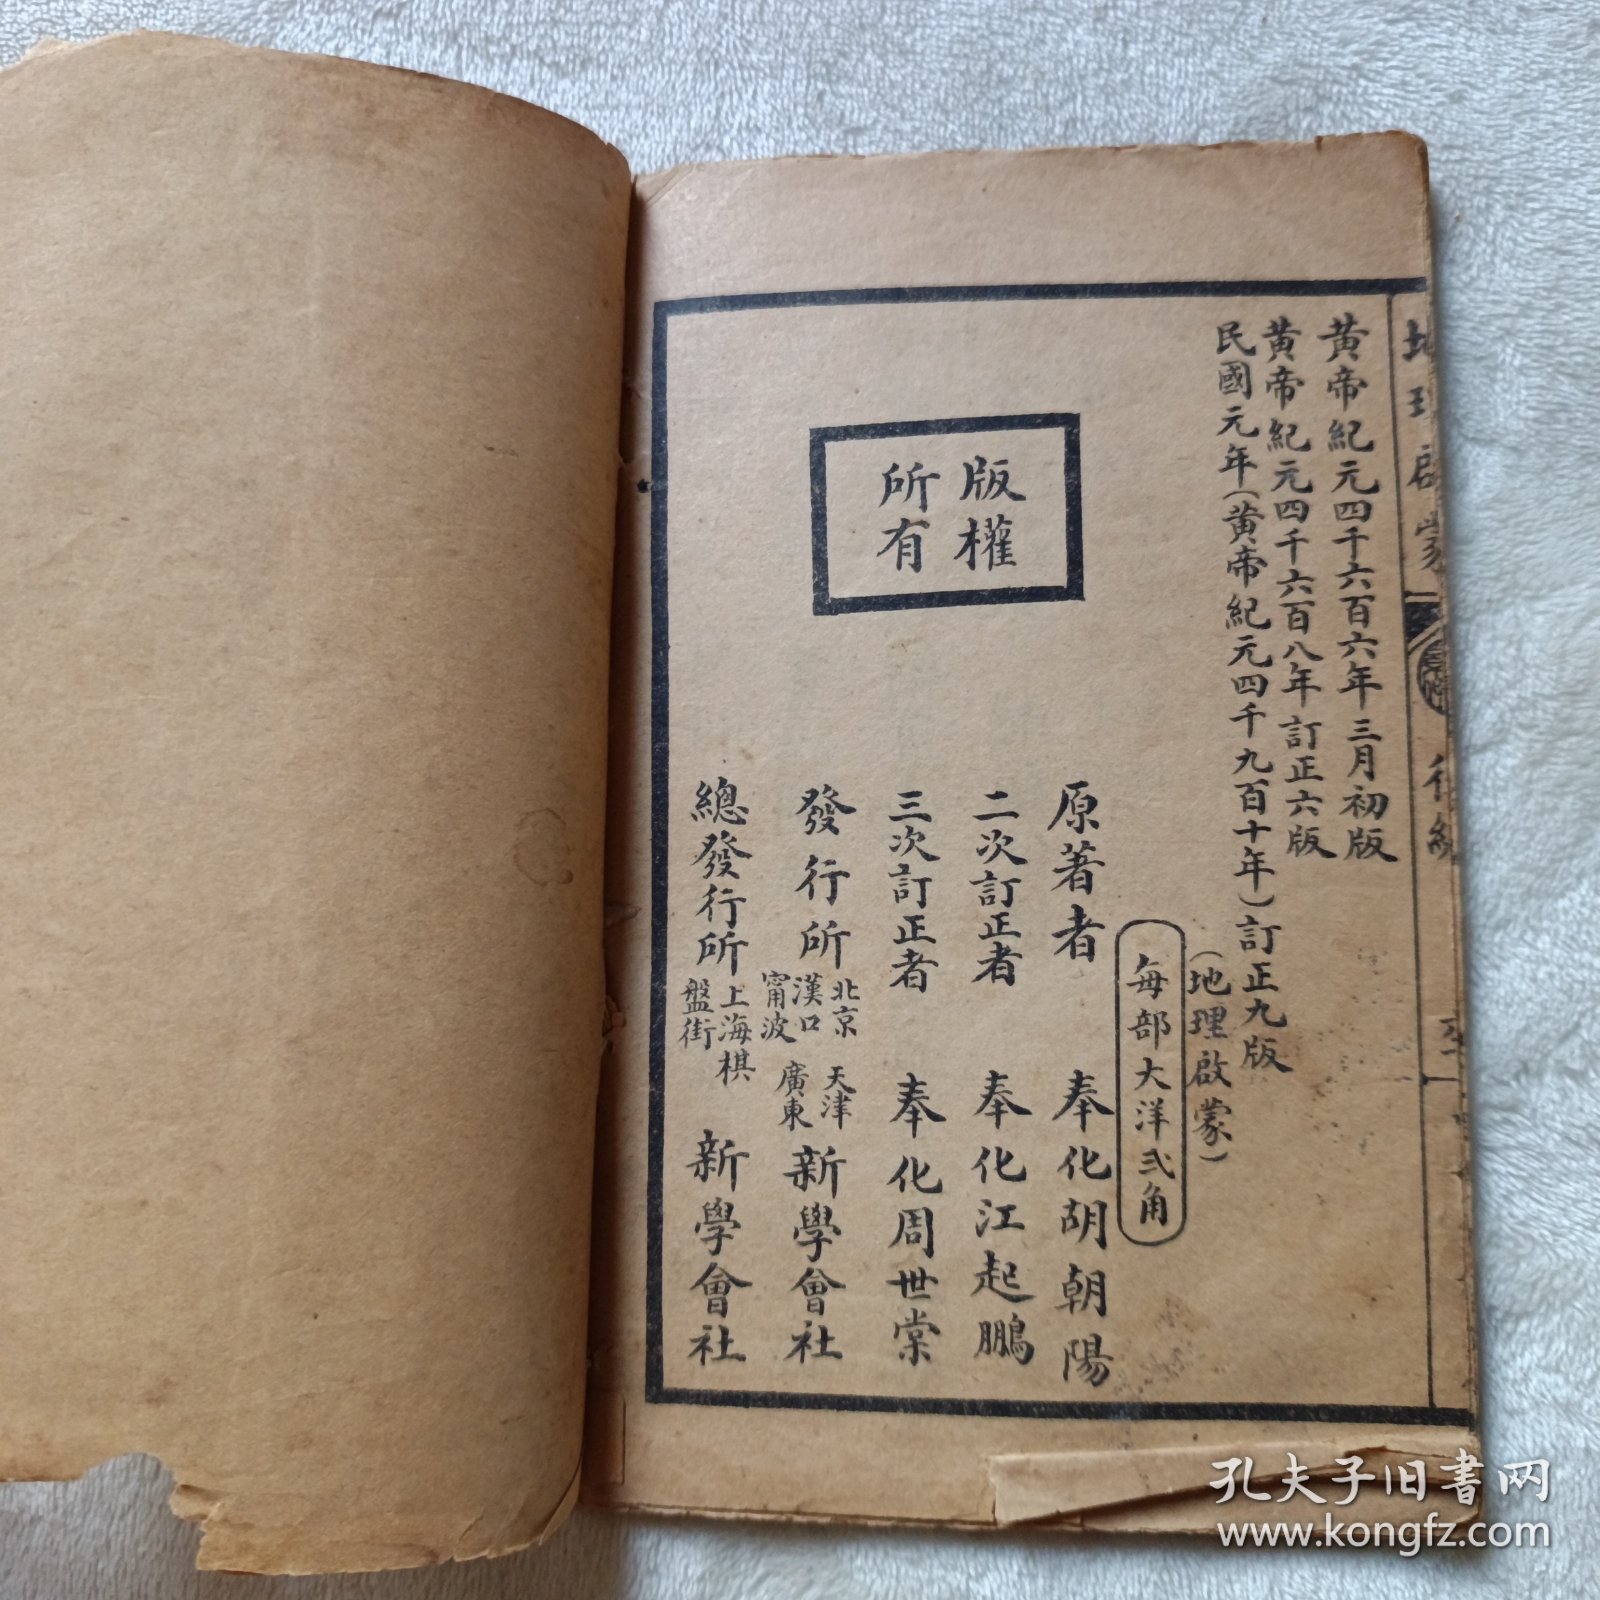 地理啟蒙
黃帝紀元四千六百六年三月初版
黃帝紀元四千六百八年訂正六版
民國元年（黃帝紀元四千九百十年）訂正九版
（地理啟蒙）
每部大洋弍角
版權
所有
原著者 奉化胡朝陽
二次訂正者 奉化江起鵬
三次訂正者 奉化周世棠
發行所 北京 天津 漢口 廣東 甯波 新學會社
總發行所 上海棋盤街 新學會社
孔夫子旧书网
www.kongfz.com